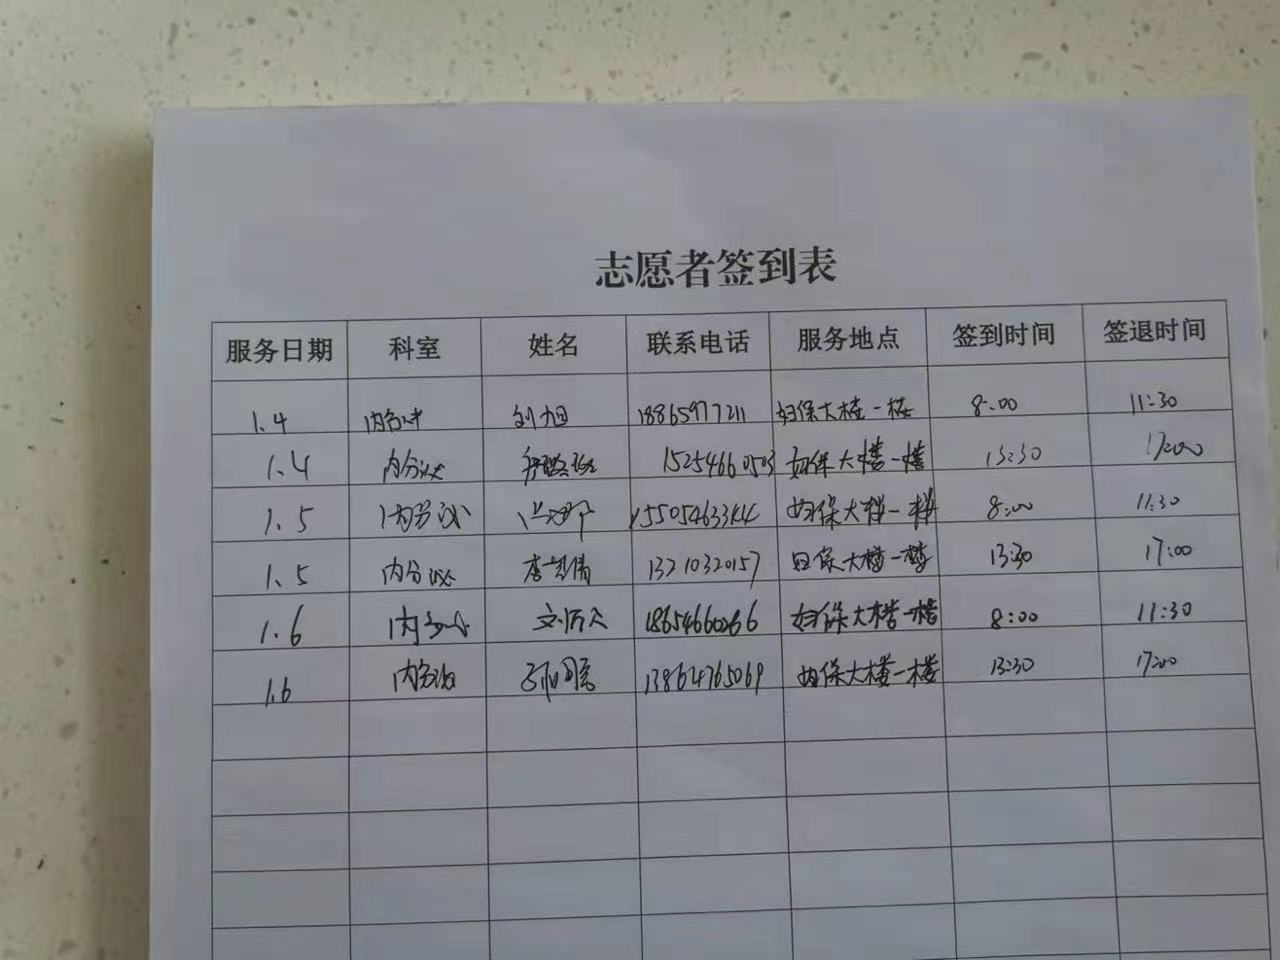 志愿者签到表
服务日期 科室 姓名 联系电话 服务地点 签到时间 签退时间
1.4 内分泌 刘旭 18865977211 妇保大楼一楼 8:00 11:30
1.4 内分泌 15254660503 妇保大楼一楼 13:30 17:00
1.5 内分泌 妇保大楼一楼 8:00 11:30
1.5 内分泌 李 倩 13210320157 妇保大楼一楼 13:30 17:00
1.6 内分泌 18654660266 妇保大楼一楼 8:00 11:30
1.6 内分泌 13864765069 妇保大楼一楼 13:30 17:00